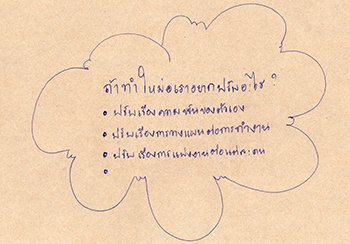 ถ้าทำใหม่เราอยากปรับอะไร?
• ปรับเรื่องความขยันของตัวเอง
• ปรับเรื่องการวางแผนต่อการทำงาน
• ปรับเรื่องการแบ่งงานต่อแต่ละคน
•